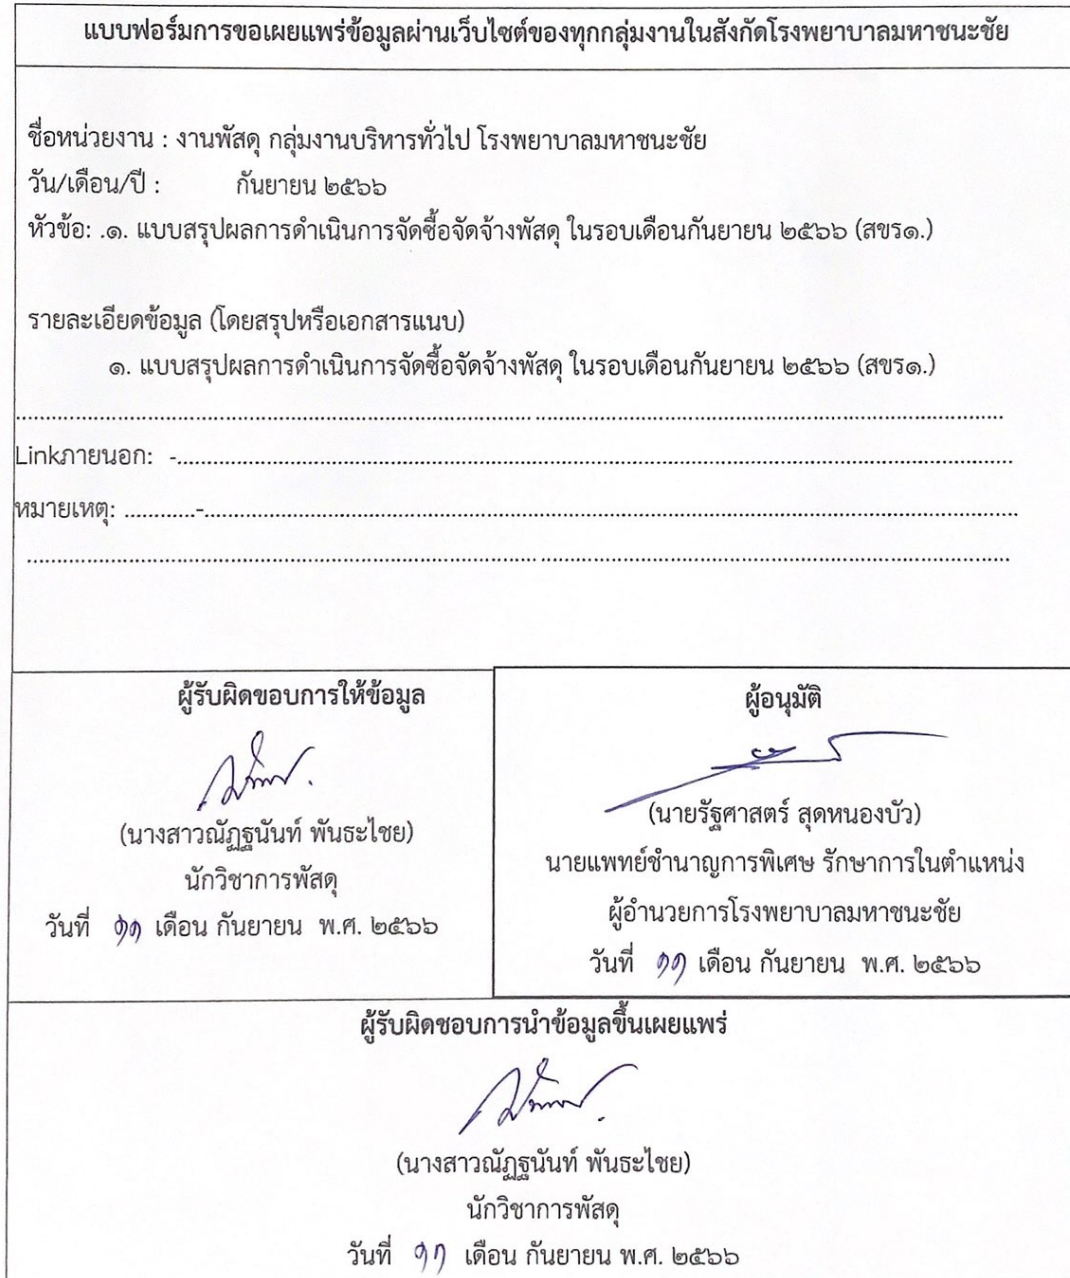 แบบฟอร์มการขอเผยแพร่ข้อมูลผ่านเว็บไซต์ของทุกกลุ่มงานในสังกัดโรงพยาบาลมหาชนะชัย
ชื่อหน่วยงาน : งานพัสดุ กลุ่มงานบริหารทั่วไป โรงพยาบาลมหาชนะชัย
วัน/เดือน/ปี : กันยายน ๒๕๖๖
หัวข้อ: .๑. แบบสรุปผลการดำเนินการจัดซื้อจัดจ้างพัสดุ ในรอบเดือนกันยายน ๒๕๖๖ (สขร๑.)
รายละเอียดข้อมูล (โดยสรุปหรือเอกสารแนบ)
๑. แบบสรุปผลการดำเนินการจัดซื้อจัดจ้างพัสดุ ในรอบเดือนกันยายน ๒๕๖๖ (สขร๑.)
Linkภายนอก: -
หมายเหตุ: ............-
ผู้รับผิดขอบการให้ข้อมูล
(นางสาวณัฏฐนันท์ พันธะไชย)
นักวิชาการพัสดุ
วันที่ ๑๑ เดือน กันยายน พ.ศ. ๒๕๖๖
ผู้อนุมัติ
(นายรัฐศาสตร์ สุดหนองบัว)
นายแพทย์ชำนาญการพิเศษ รักษาการในตำแหน่ง
ผู้อำนวยการโรงพยาบาลมหาชนะชัย
วันที่ ๑๑ เดือน กันยายน พ.ศ. ๒๕๖๖
ผู้รับผิดชอบการนำข้อมูลขึ้นเผยแพร่
(นางสาวณัฏฐนันท์ พันธะไชย)
นักวิชาการพัสดุ
วันที่ ๑๑ เดือน กันยายน พ.ศ. ๒๕๖๖